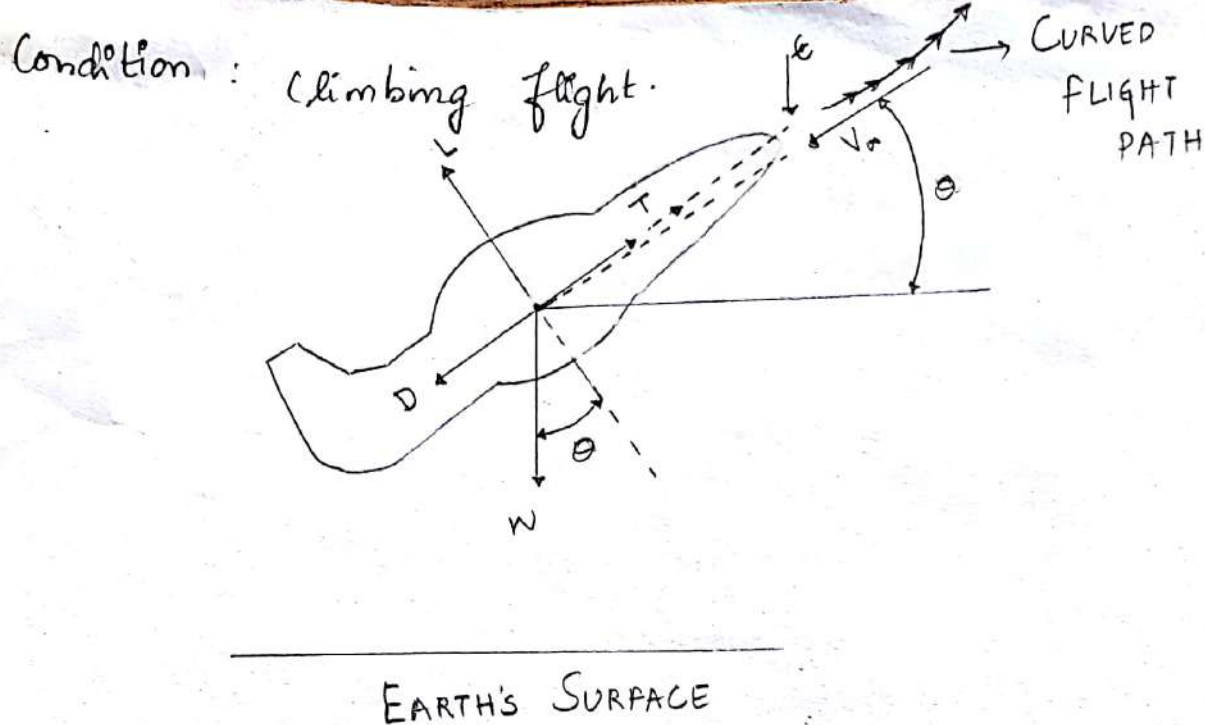 Condition : Climbing flight.
CURVED
FLIGHT
PATH
ε
V∞
θ
L
T
D
θ
W
EARTH'S SURFACE